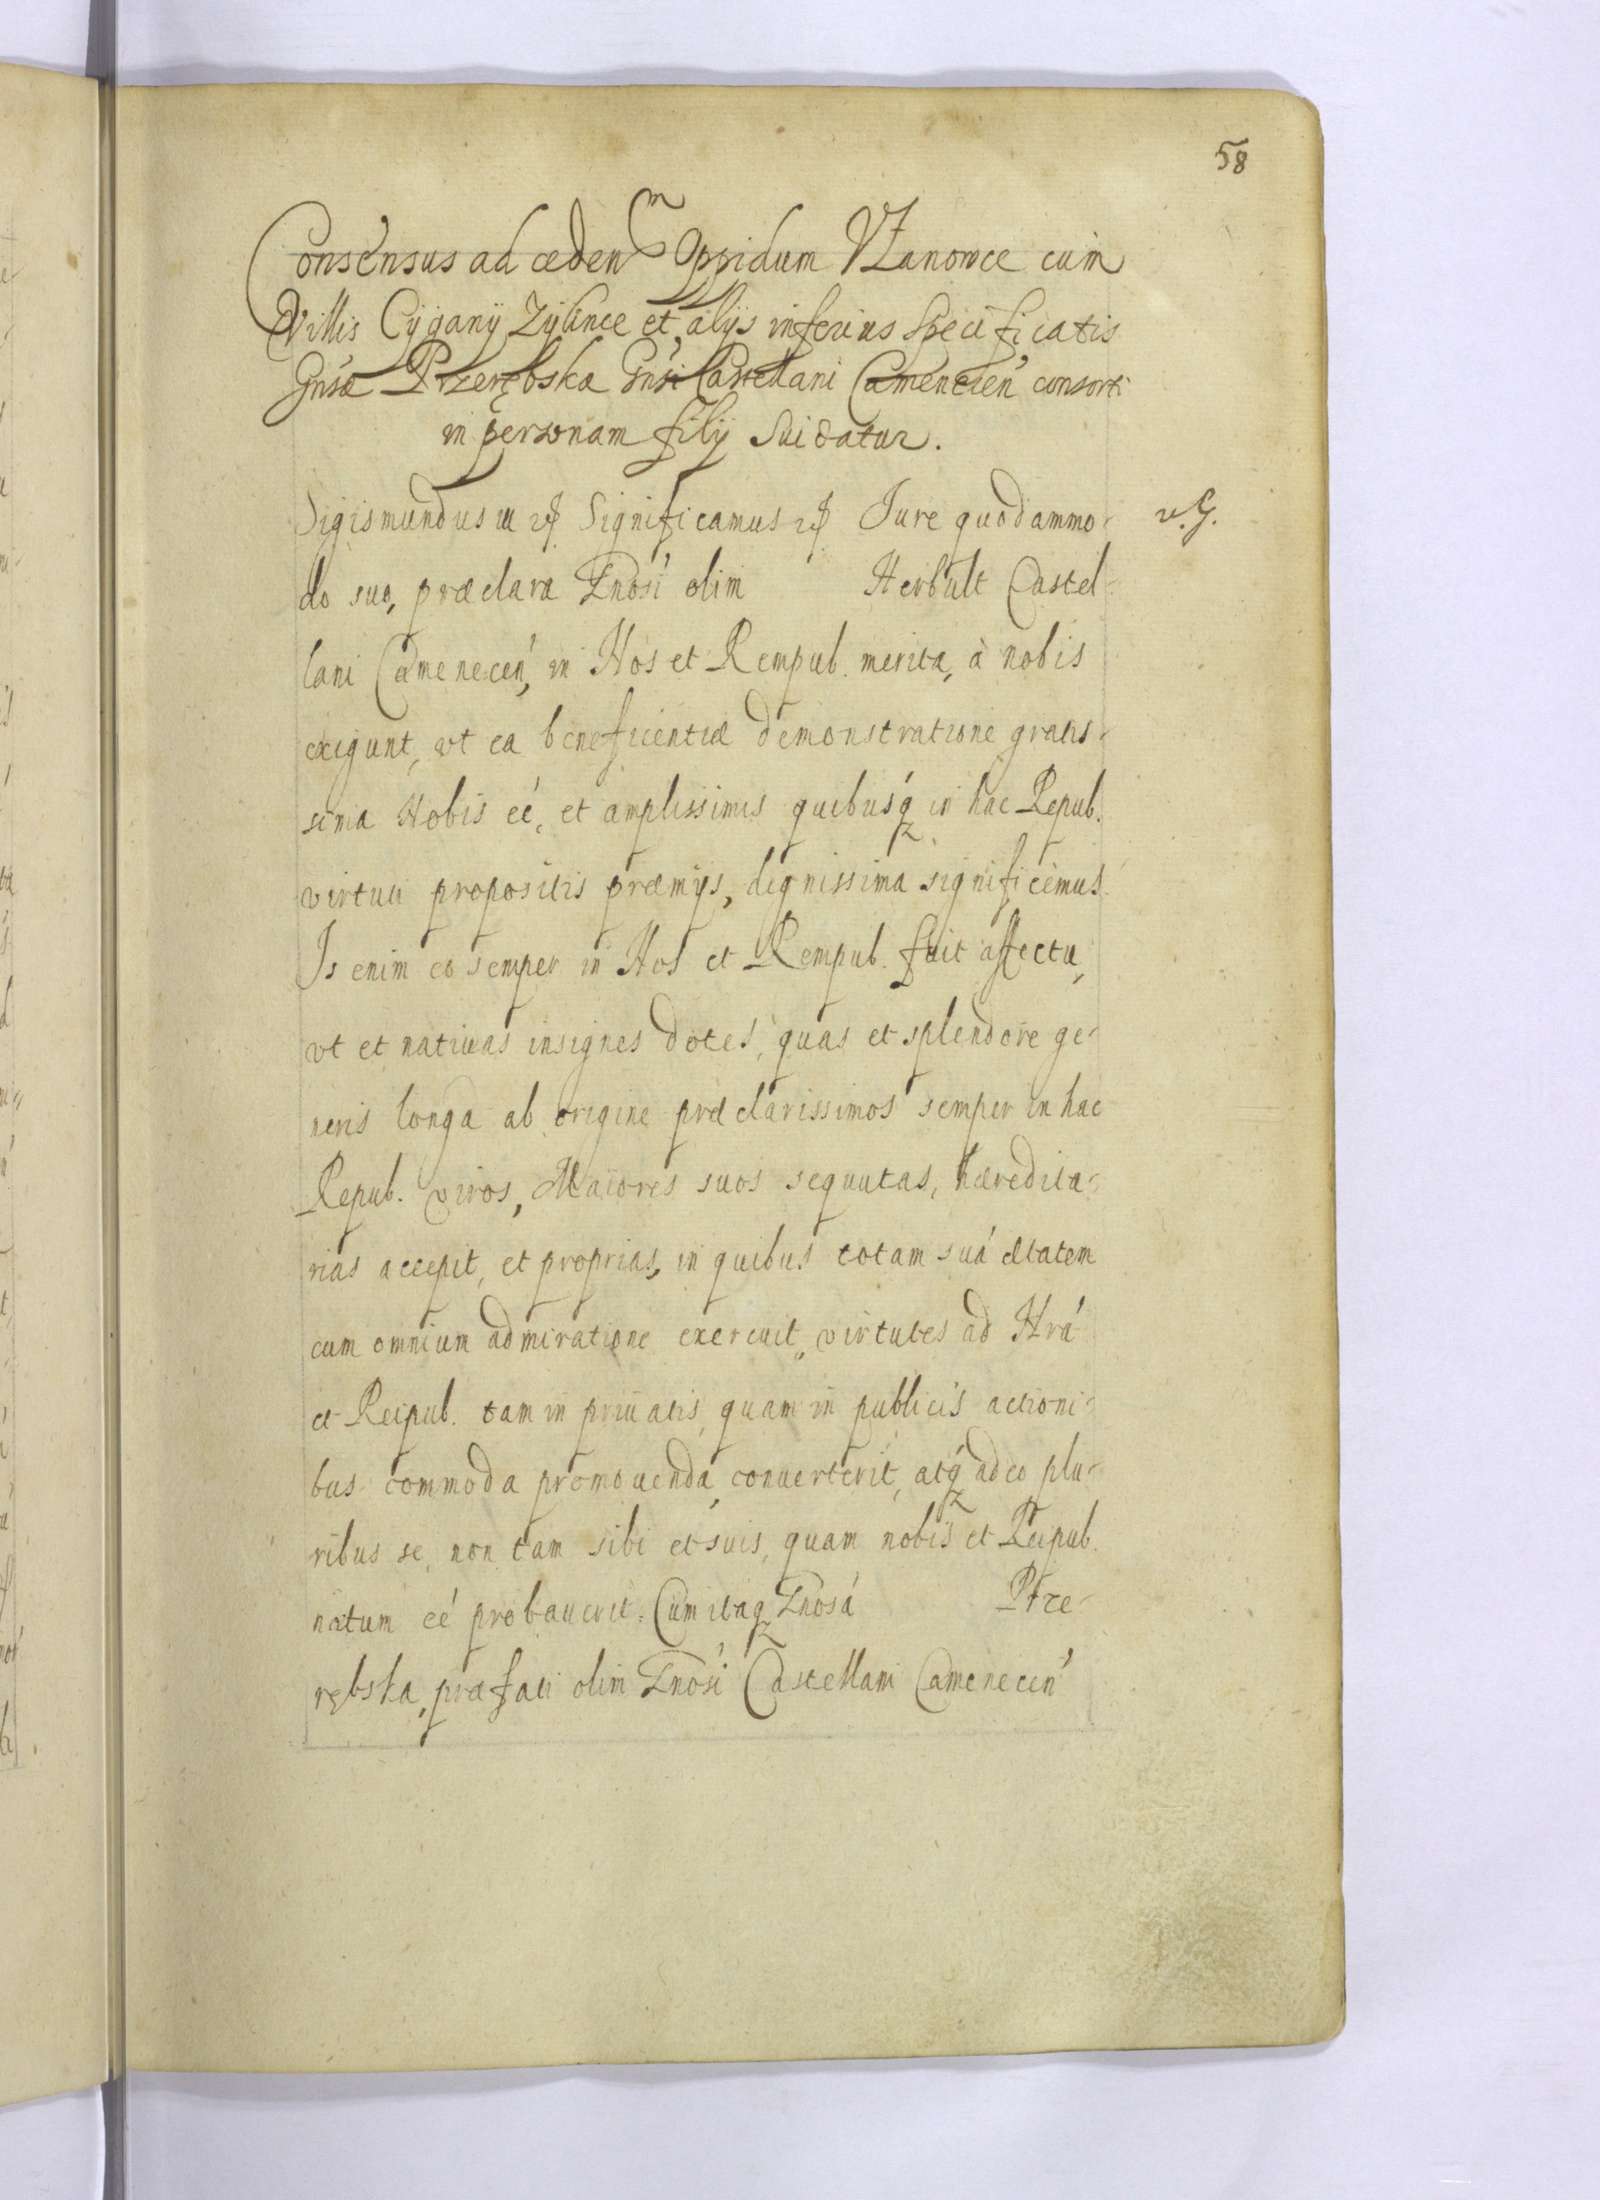 58
Consensus ad cedenm Oppidum Vzanowce cum
Villis Cÿganÿ Zÿlince et alijs inferius Specificatis
Gnsæ Przerębska Gnsi Castellani Camenecen consorti
in personam filij Sui datur.
Sigismundus III Significamus Jure quodammo- v. G.
do suo, præclara Gnosi olim Herbult Castel-
lani Camenecen, in Nos et Rempub. merita, à nobis
exigunt, vt ea beneficentiæ demonstratione gratis-
sima Nobis eé, et amplissimis quibusq in hac Repub.
virtuti propositis præmijs, dignissima significemus.
Is enim eo semper in Nos et Rempub. fuit affectu,
vt et natiuas insignes dotes, quas et splendore ge-
neris longa ab origine præclarissimos semper in hac
Repub. viros, Maiores suos sequutas, hæredita-
rias accepit, et proprias, in quibus totam suá ætatem
cum omnium admiratione exercuit, virtutes ad Nrá
et Reipub. tam in priuatis, quam in publicis actioni-
bus commoda promouenda, conuerterit, atq adeo plu-
ribus se, non tam sibi et suis, quam nobis et Reipub.
natum eé probauerit. Cum itaq Gnosá Prze-
rębska, præfati olim Gnosi Castellani Camenecen